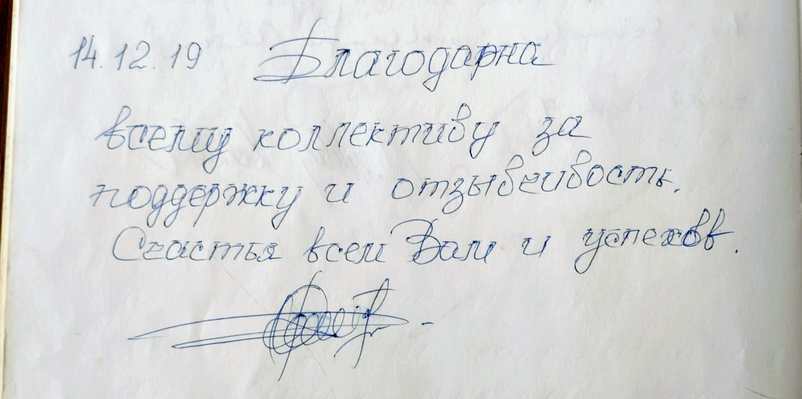 14.12.19 Благодарна
всему коллективу за
поддержку и отзывчивость.
Счастья всем Вам и успехов.